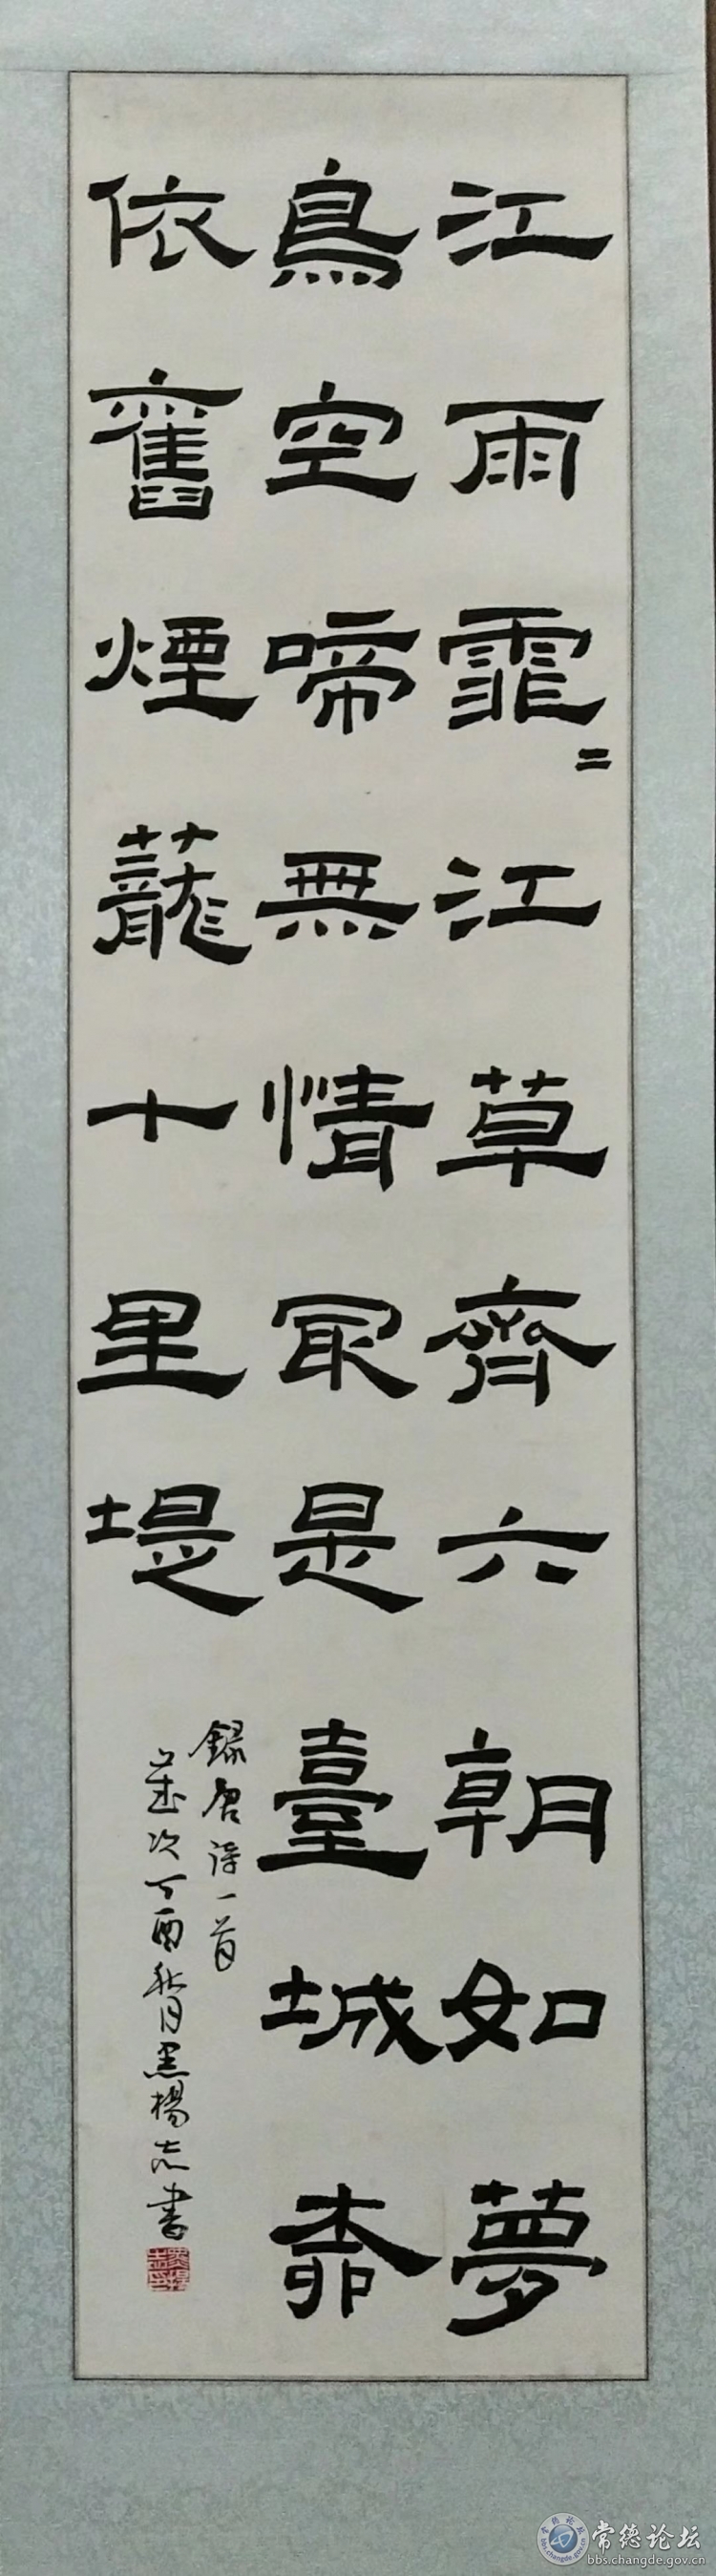 江雨霏〻江草齊六朝如夢
鳥空啼無情冣是臺城桺
依舊煙蘢十里堤
錄唐詩一首
歲次丁酉秋月黑楊志書
常德论坛
bbs.changde.gov.cn